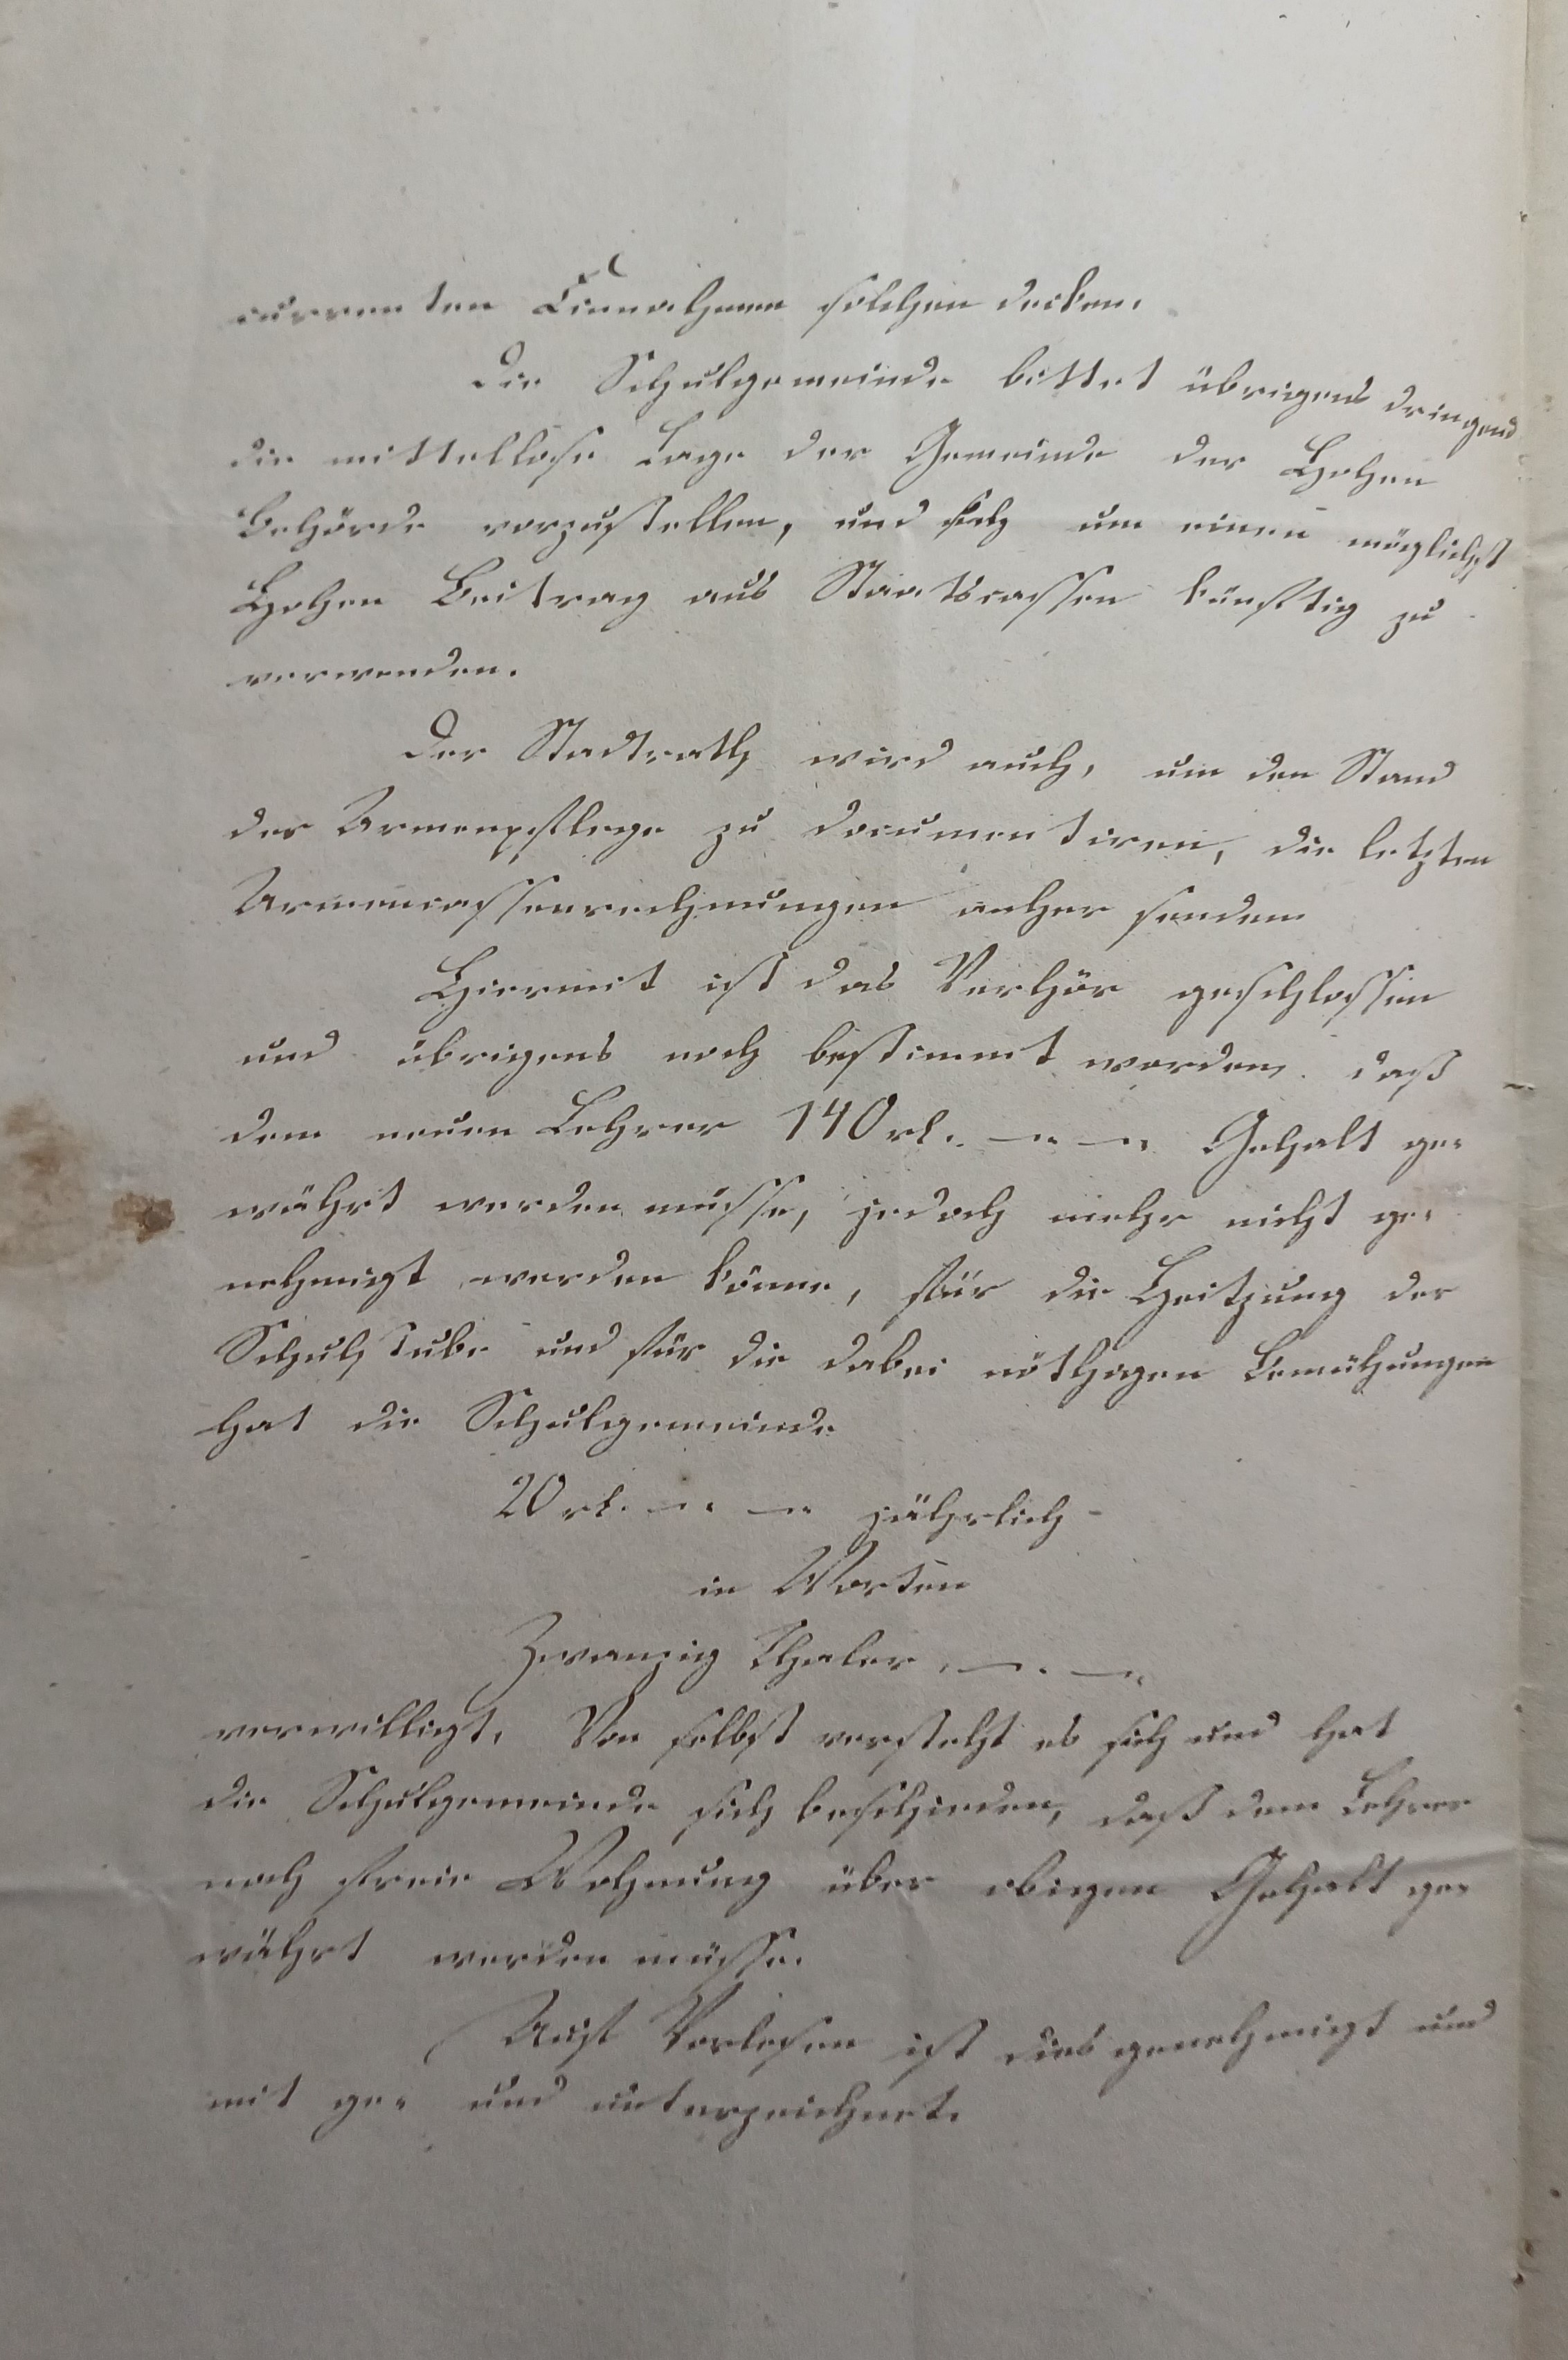 currenten Einnahmen solchen decken.
Die Schulgemeinde bittet übrigens dringend
die mittellose Lage der Gemeinde der Hohen
Behörde vorzustellen, und sich um einen möglichst
Hohen Beitrag aus Staatscassen künftig zu
verwenden.
Der Stadtrath wird auch, um den Stand
der Armenpflege zu documentiren, die letzten
Armencassenrechnungen anher senden
Hiermit ist das Verhör geschlossen
und übrigens noch bestimmt worden, daß
dem neuen Lehrer 140 rl. — „ — „ Gehalt ge-
währt werden müsse, jedoch mehr nicht ge-
nehmigt werden könne, für die Heitzung der
Schulstube und für die dabei nöthigen Bemühungen
hat die Schulgemeinde
20 rl. — „ — „ jährlich —
in Worten
Zwanzig Thaler, — „ — „
verwilligt. Von selbst versteht es sich und hat
die Schulgemeinde sich beschieden, daß dem Lehrer
noch freie Wohnung über obigen Gehalt ge-
währt werden müsse.
Auf Vorlesen ist dies genehmigt und
mit ge- und unterzeichnet.